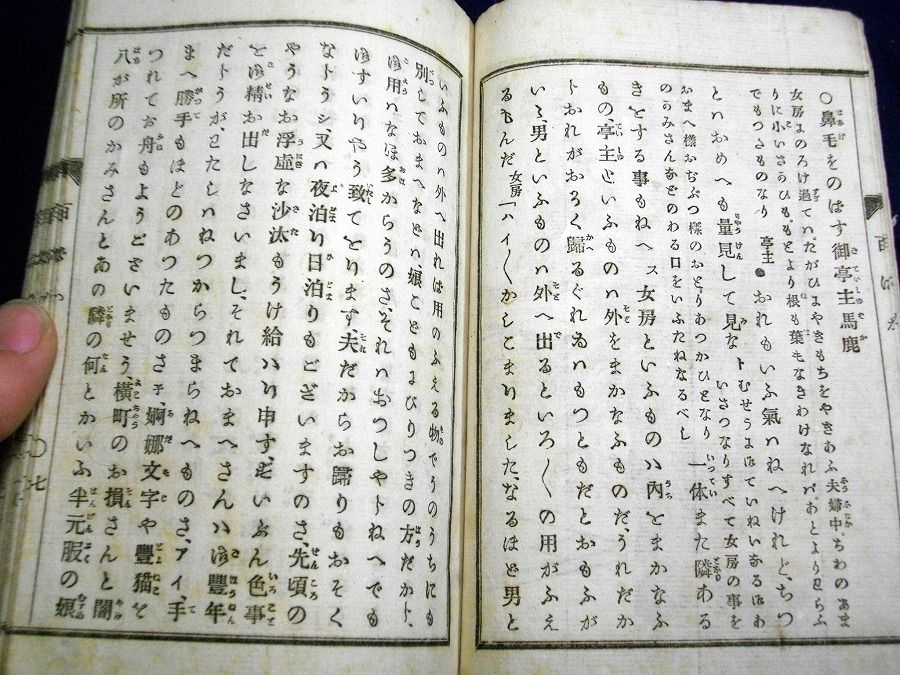 ○鼻毛をのばす御亭主馬鹿
女房にのろけ過ていたがひにやきもちをやきあふ夫婦中。ちわのあま
りに小いさうひも。もとより根も葉もなきわけなれバ。おとよりせらふ
でもつさものなり 亭主 おれもいふ氣ハねへけれど、ちつ
とハおめへも量見して見な トむせうにはていねいなるはわ
おまへ様おぢぶつ様のおとりあつかひとなり 一体また隣ある
のかみさんなどのわる口をいふたねなるべし
きをする事もねへス女房といふものハ內をまかなふ
もの、亭主といふものハ外をまかなふものだ、うれだか
トおれがおそく歸るぐれゑハもつともだとおもふが
いゝ、男といふものハ外へ出るといろ〳〵の用がふえ
るもんだ 女房「ハイ〳〵かしこまりました、なるほど男と
いふものハ外へ出れは用のふえる物でうのうちにも
別しておまへなどハ娘こどもにひりつきの方だからト、
御用ハなほ多からうのさ、それハおつしやトねへでも
御すいりやう致てをります、夫だからお歸りもおそく
なトうシ、又ハ夜泊り日泊りもございますのさ、先頃の
やうなお浮虛な沙汰もうけ給ハり申す、ずいぶん色事
を御精お出しなさいまし、それでおまへさんハ御豐年
だトうが、わたしハねつからつまらねへものさ、アイ、手
まへ勝手もほどのあつたものさチ、婀娜文字や豐猫を
つれてお舟もようございませう橫町のお損さんと闇
八が所のかみさんとあの隣の何とかいふ半元服の娘